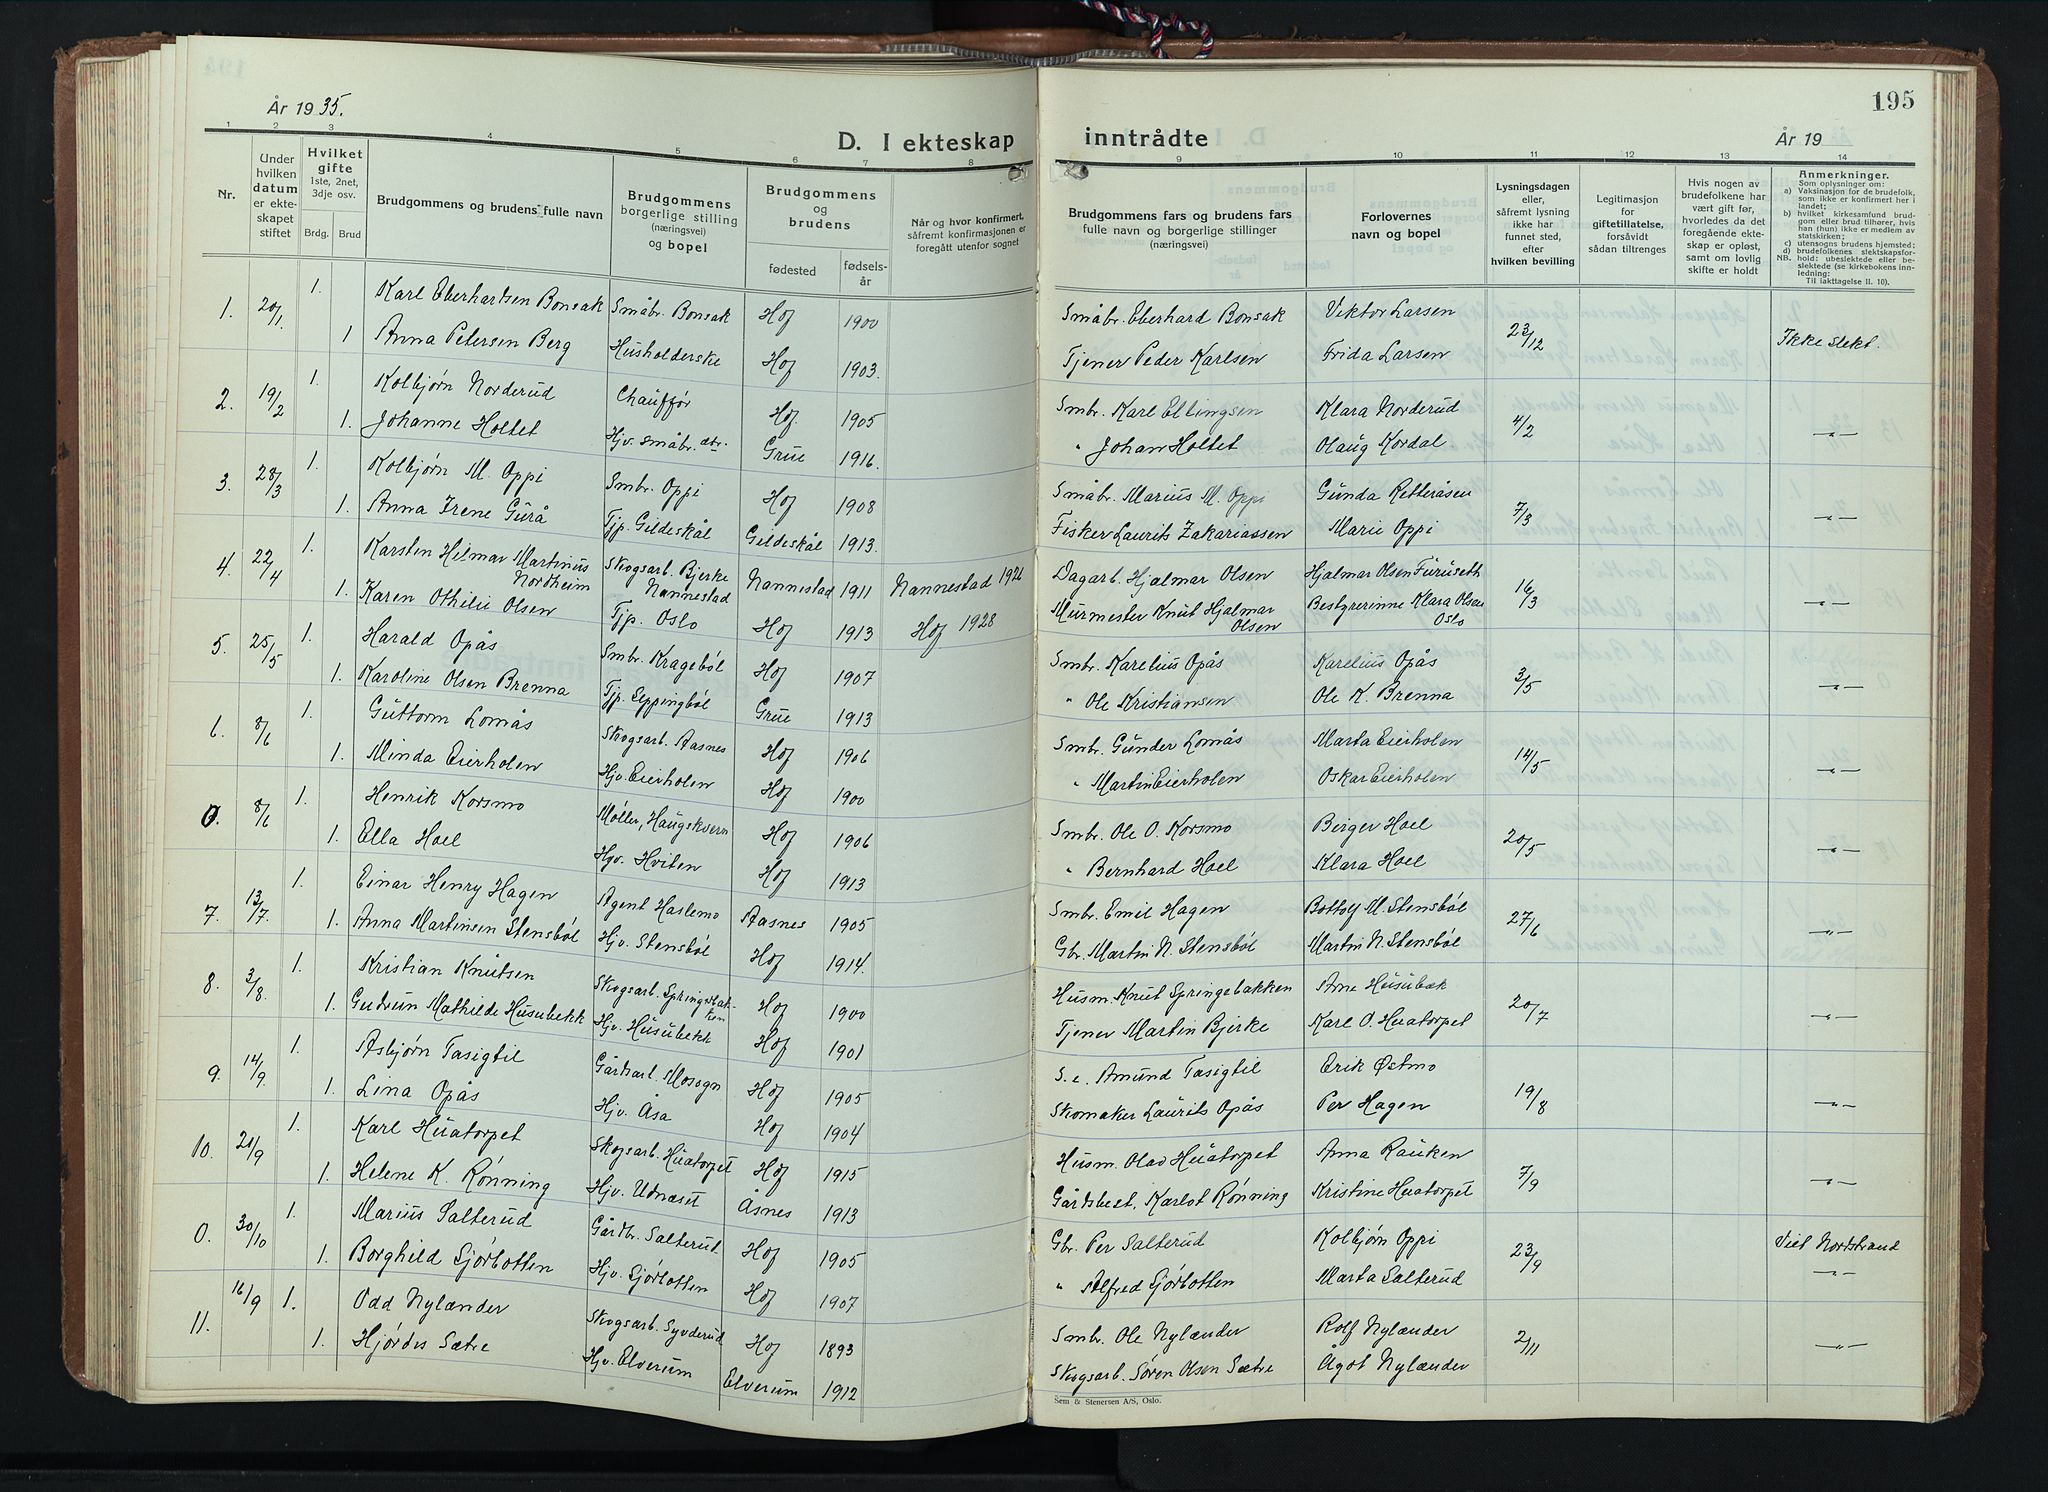 195
År 1935.
År 19
D. I ekteskap inntrådte
1 2 3 4 5 6 7 8 9 10 11 12 13 14
Nr.
Under hvilken datum er ekteskapet stiftet
Hvilket gifte 1ste, 2net, 3dje osv.
Brdg. Brud
Brudgommens og brudens fulle navn
Brudgommens borgerlige stilling (næringsvei) og bopel
Brudgommens og brudens
fødested
fødselsår
Når og hvor konfirmert, såfremt konfirmasjonen er foregått utenfor sognet
Brudgommens fars og brudens fars fulle navn og borgerlige stillinger (næringsvei)
Forlovernes navn og bopel
Lysningsdagen eller, såfremt lysning ikke har funnet sted, efter hvilken bevilling
Legitimasjon for giftetillatelse, forsåvidt sådan tiltrenges
Hvis nogen av brudefolkene har vært gift før, hvorledes da det foregående ekteskap er opløst, samt om lovlig skifte er holdt
Anmerkninger.
Som oplysninger om:
a) Vaksinasjon for de brudefolk, som ikke er konfirmert her i landet;
b) hvilket kirkesamfund brudgom eller brud tilhører, hvis han (hun) ikke er medlem av statskirken;
c) utensogns brudens hjemsted;
d) brudefolkenes slektskapsforhold: ubeslektede eller beslektede (se kirkebokens innledning;
NB.
Til iakttagelse II. 10).
1. 20/1. 1. Karl Eberhardsen Bonsak Småbr. Bonsak Hof 1900 Småbr. Eberhard Bonsak Viktor Larsen 23/12 Ikke slekt.
1 Anna Petersen Berg Husholderske Hof 1903. Tjener Peder Karlsen Frida Larsen
2. 19/2 1. Kolbjørn Norderud Chauffør Hof. 1905 Smbr. Karl Ellingsen Klara Norderud 4/2 -"-
1. Johanne Holtet Hjv. småbr. dtr. Grue 1916. " Johan Holtet Olaug Kordal
3. 28/3 1. Kolbjørn M. Oppi Smbr. Oppi Hof 1908 Småbr. Marius M. Oppi Gunda Retteråsen 7/3 -"-
1. Anna Irene Gurå Tjp. Gildeskål Gildeskål 1913. Fisker Laurits Zakariassen Marie Oppi
4. 22/4 1. Karsten Hilmar Martinius Nordheim Skogsarb. Bjerke Nannestad Nannestad 1911 Nannestad 1926 Dagarb. Hjalmar Olsen Hjalmar Olsen Furuseth 16/3 -"-
1. Karen Othilie Olsen Tjp. Oslo Hof 1913 Hof 1928 Murmester Knut Hjalmar Olsen Bestyrerinne Klara Olsen Oslo
5. 25/5 1. Harald Opås Smbr. Kragebøl Hof 1907 Smbr. Karelius Opås Karelius Opås 3/5 -"-
1. Karoline Olsen Brenna Tjp. Seppingbøl Grue 1913 " Ole Kristiansen Ole K. Brenna
6. 8/6 1. Guttorm Lomås Skogsarb. Aasnes Hof 1906 Smbr. Gunder Lomås Marta Eierholen 14/5 -"-
1. Minda Eierholen Hjv. Eierholen Hof 1900 " Martin Eierholen Oskar Eierholen
0. 8/6 1. Henrik Korsmo Møller, Haugskvern Hof 1906 Smbr. Ole O. Korsmo Birger Hoel 20/5 -"-
1. Ella Hoel Hjv. Hviten Hof 1913 " Bernhard Hoel Klara Hoel
7. 13/7. 1. Einar Henry Hagen Agent Haslemo Aasnes 1905 Smbr. Emil Hagen Bottolf M. Stensbøl 27/6 -"-
1. Anna Martinsen Stensbøl Hjv. Stensbøl Hof 1914. Gbr. Martin N. Stensbøl Martin N. Stensbøl
8. 3/8. 1. Kristian Knutsen Skogsarb. Springsbakken Hof 1900 Husm. Knut Springsbakken Ane Husubæk 20/7 -"-
1. Gudrun Mathilde Husubekk Hjv. Husubekk Hof 1901 Tjener Martin Bjerke Karl O. Huatorpet
9. 14/9. 1. Asbjørn Tasigtil Gårdsarb. Mosogn Hof 1905 S.e. Amund Tasigtil Erik Østmo 19/8 -"-
1. Lina Opås Hjv. Åsa Hof 1904 Skomaker Laurits Opås Per Hagen
10. 21/9 1. Karl Huatorpet Skogsarb. Huatorpet Hof 1915 Husm. Olav Huatorpet Anna Rauken 7/9 -"-
1. Helene K. Rønning Hjv. Udnæset Åsnes 1913 Gårdsbest. Karlot Rønning Kristine Huatorpet
0. 30/10 1. Marius Salterud Gårdbr. Salterud Hof 1905 Gbr. Per Salterud Kolbjørn Oppi 23/9 Viet Nordstrand
1. Borghild Sjørbotten Hjv. Sjørbotten Hof 1907 " Alfred Sjørbotten Marta Salterud -"-
11. 16/9 1. Odd Nylænder Skogsarb. Syvderud Hof 1893 Smbr. Ole Nylænder Rolf Nylænder 2/11 -"-
1. Hjørdis Sætre Hjv. Elverum Elverum 1912 Skogsarb. Søren Olsen Sætre Ågot Nylænder
Sem & Stenersen A/S, Oslo.